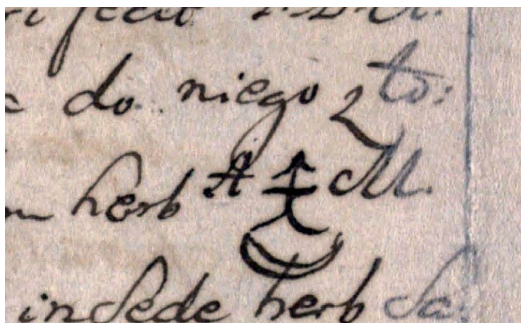 do niego to:
herb A M.
in Sede herb Sa: